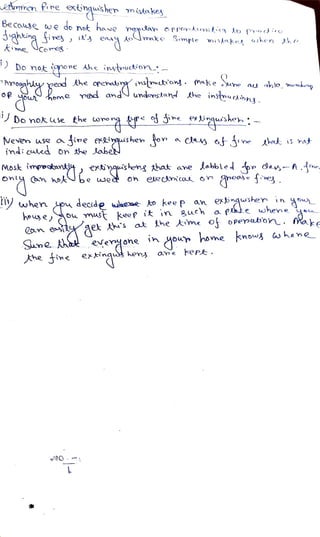 Common Fire extinguisher mistakes
Because we do not have regular opportunities to practice
fighting fires, it's easy to make simple mistakes when the
time comes.
i) Do not ignore the instruction :-
Throughly read the operating instructions. Make sure all
of your home read and understand the instructions.
ii) Do not use the wrong type of fire extinguisher :-
Never use a fire extinguisher for a class of fire that is not
indicated on the label
Most importantly, extinguishers that are labbled for class - A fire
only can not be used on electrical or grease fires.
iii) When you decide to keep an extinguisher in your
house, you must keep it in such a place where you
can easily get this at the time of operation. Make
Sure that everyone in your home knows where
the fire extinguishers are kept.